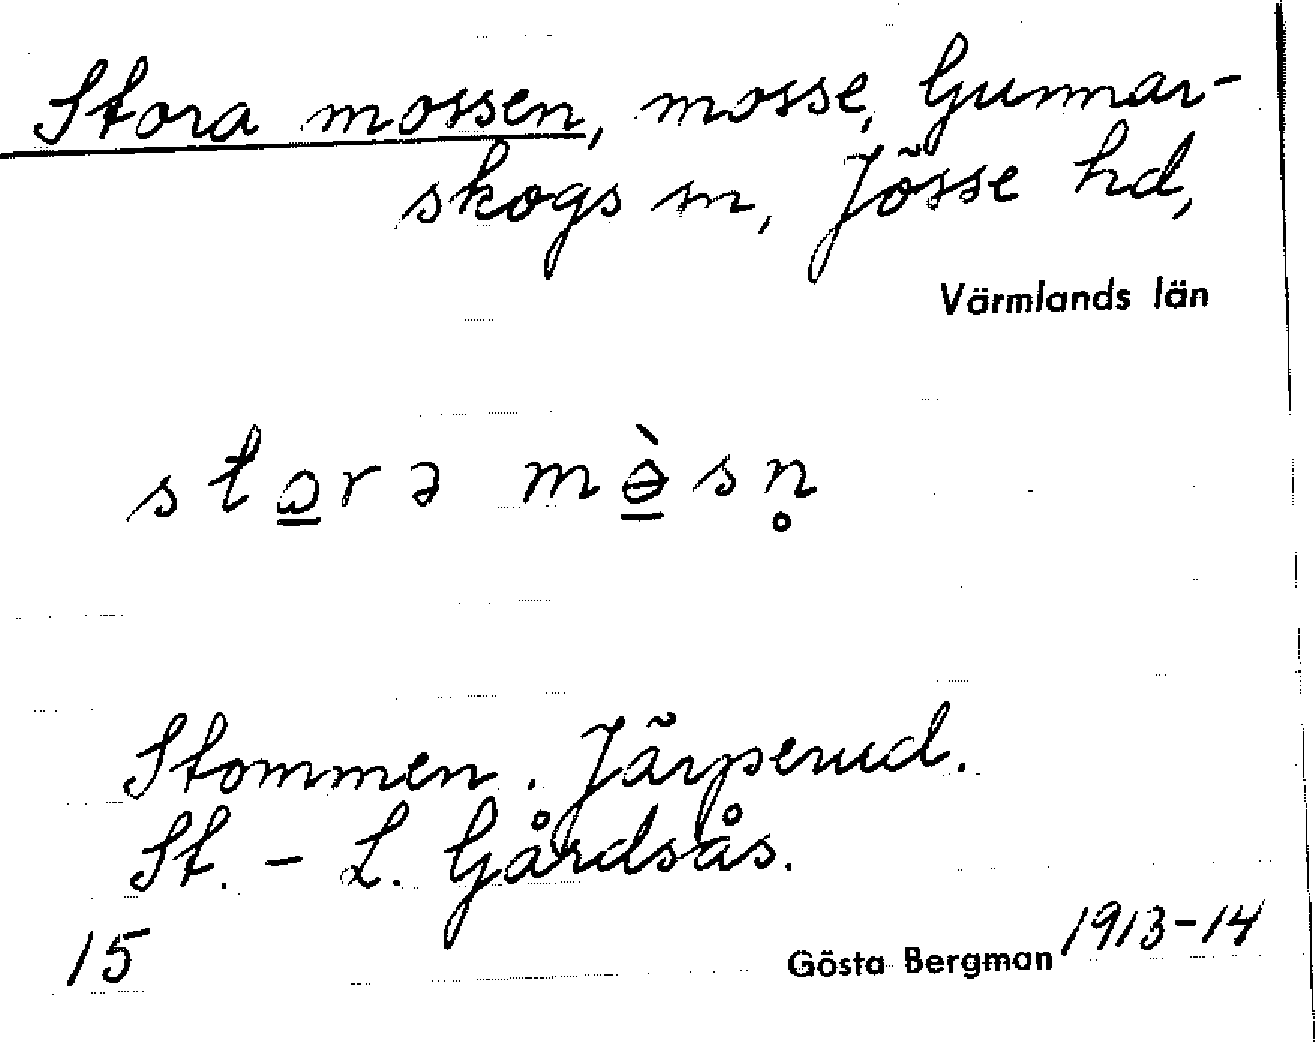 Stora mossen, mosse, Gunnar-
skogs sn, Jösse hd,
Värmlands län
sto̲rə mɵ̲̀sn̥
Stommen. Järperud.
St. - L. Gårdsås.
15
Gösta Bergman 1913-14